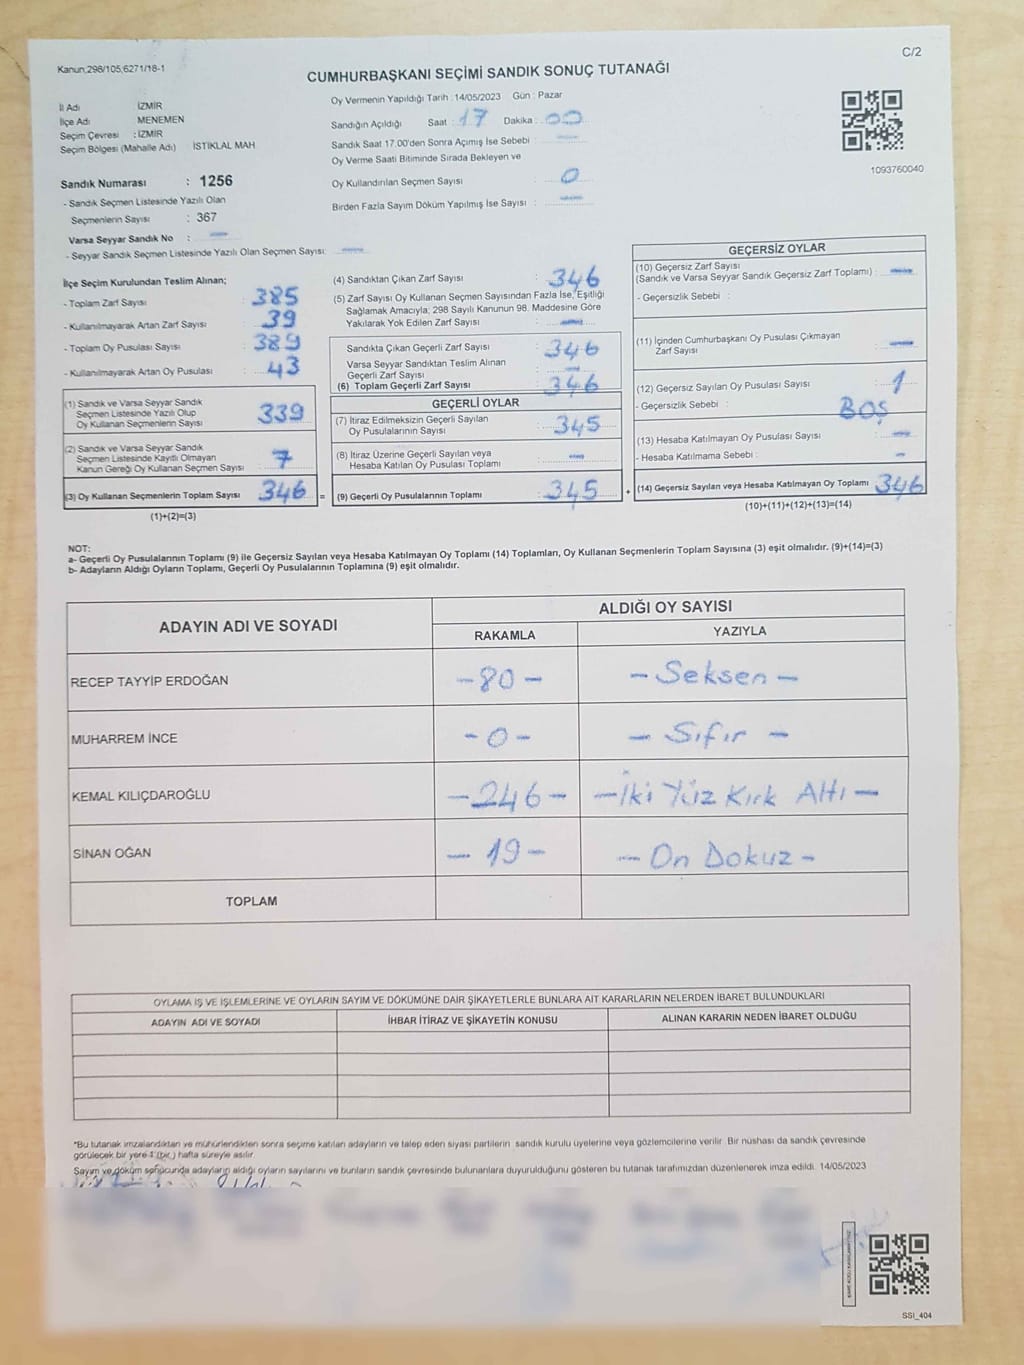 C/2
Kanun,298/105,6271/18-1
CUMHURBAŞKANI SEÇİMİ SANDIK SONUÇ TUTANAĞI
İl Adı İZMİR
İlçe Adı MENEMEN
Seçim Çevresi : İZMİR
Seçim Bölgesi (Mahalle Adı) İSTİKLAL MAH
Sandık Numarası : 1256
- Sandık Seçmen Listesinde Yazılı Olan
Seçmenlerin Sayısı : 367
Varsa Seyyar Sandık No : —
- Seyyar Sandık Seçmen Listesinde Yazılı Olan Seçmen Sayısı: —
Oy Vermenin Yapıldığı Tarih : 14/05/2023 Gün : Pazar
Sandığın Açıldığı Saat : 17 Dakika : 00
Sandık Saat 17.00'den Sonra Açımış İse Sebebi : —
Oy Verme Saati Bitiminde Sırada Bekleyen ve
Oy Kullandırılan Seçmen Sayısı : 0
Birden Fazla Sayım Döküm Yapılmış İse Sayısı : —
1093760040
İlçe Seçim Kurulundan Teslim Alınan;
- Toplam Zarf Sayısı : 385
- Kullanılmayarak Artan Zarf Sayısı : 39
- Toplam Oy Pusulası Sayısı : 389
- Kullanılmayarak Artan Oy Pusulası : 43
(1) Sandık ve Varsa Seyyar Sandık
Seçmen Listesinde Yazılı Olup
Oy Kullanan Seçmenlerin Sayısı : 339
(2) Sandık ve Varsa Seyyar Sandık
Seçmen Listesinde Kayıtlı Olmayan
Kanun Gereği Oy Kullanan Seçmen Sayısı : 7
(3) Oy Kullanan Seçmenlerin Toplam Sayısı : 346 =
(1)+(2)=(3)
(4) Sandıktan Çıkan Zarf Sayısı : 346
(5) Zarf Sayısı Oy Kullanan Seçmen Sayısından Fazla İse, Eşitliği
Sağlamak Amacıyla; 298 Sayılı Kanunun 98. Maddesine Göre
Yakılarak Yok Edilen Zarf Sayısı : —
Sandıkta Çıkan Geçerli Zarf Sayısı : 346
Varsa Seyyar Sandıktan Teslim Alınan
Geçerli Zarf Sayısı : —
(6) Toplam Geçerli Zarf Sayısı : 346
GEÇERLİ OYLAR
(7) İtiraz Edilmeksizin Geçerli Sayılan
Oy Pusulalarının Sayısı : 345
(8) İtiraz Üzerine Geçerli Sayılan veya
Hesaba Katılan Oy Pusulası Toplamı : —
(9) Geçerli Oy Pusulalarının Toplamı : 345 +
GEÇERSİZ OYLAR
(10) Geçersiz Zarf Sayısı
(Sandık ve Varsa Seyyar Sandık Geçersiz Zarf Toplamı) : —
- Geçersizlik Sebebi :
(11) İçinden Cumhurbaşkanı Oy Pusulası Çıkmayan
Zarf Sayısı : —
(12) Geçersiz Sayılan Oy Pusulası Sayısı : 1
- Geçersizlik Sebebi : BOŞ
(13) Hesaba Katılmayan Oy Pusulası Sayısı : —
- Hesaba Katılmama Sebebi : —
(14) Geçersiz Sayılan veya Hesaba Katılmayan Oy Toplamı : 346
(10)+(11)+(12)+(13)=(14)
NOT:
a- Geçerli Oy Pusulalarının Toplamı (9) ile Geçersiz Sayılan veya Hesaba Katılmayan Oy Toplamı (14) Toplamları, Oy Kullanan Seçmenlerin Toplam Sayısına (3) eşit olmalıdır. (9)+(14)=(3)
b- Adayların Aldığı Oyların Toplamı, Geçerli Oy Pusulalarının Toplamına (9) eşit olmalıdır.
ADAYIN ADI VE SOYADI
ALDIĞI OY SAYISI
RAKAMLA YAZIYLA
RECEP TAYYİP ERDOĞAN -80- - Seksen -
MUHARREM İNCE -0- - Sıfır -
KEMAL KILIÇDAROĞLU -246- - İki Yüz Kırk Altı -
SİNAN OĞAN -19- - On Dokuz -
TOPLAM
OYLAMA İŞ VE İŞLEMLERİNE VE OYLARIN SAYIM VE DÖKÜMÜNE DAİR ŞİKAYETLERLE BUNLARA AİT KARARLARIN NELERDEN İBARET BULUNDUKLARI
ADAYIN ADI VE SOYADI İHBAR İTİRAZ VE ŞİKAYETİN KONUSU ALINAN KARARIN NEDEN İBARET OLDUĞU
*Bu tutanak imzalandıktan ve mühürlendikten sonra seçime katılan adayların ve talep eden siyasi partilerin sandık kurulu üyelerine veya gözlemcilerine verilir. Bir nüshası da sandık çevresinde
görülecek bir yere 1 (bir) hafta süreyle asılır.
Sayım ve döküm sonucunda adayların aldığı oyların sayılarını ve bunların sandık çevresinde bulunanlara duyurulduğunu gösteren bu tutanak tarafımızdan düzenlenerek imza edildi. 14/05/2023
SSI_404